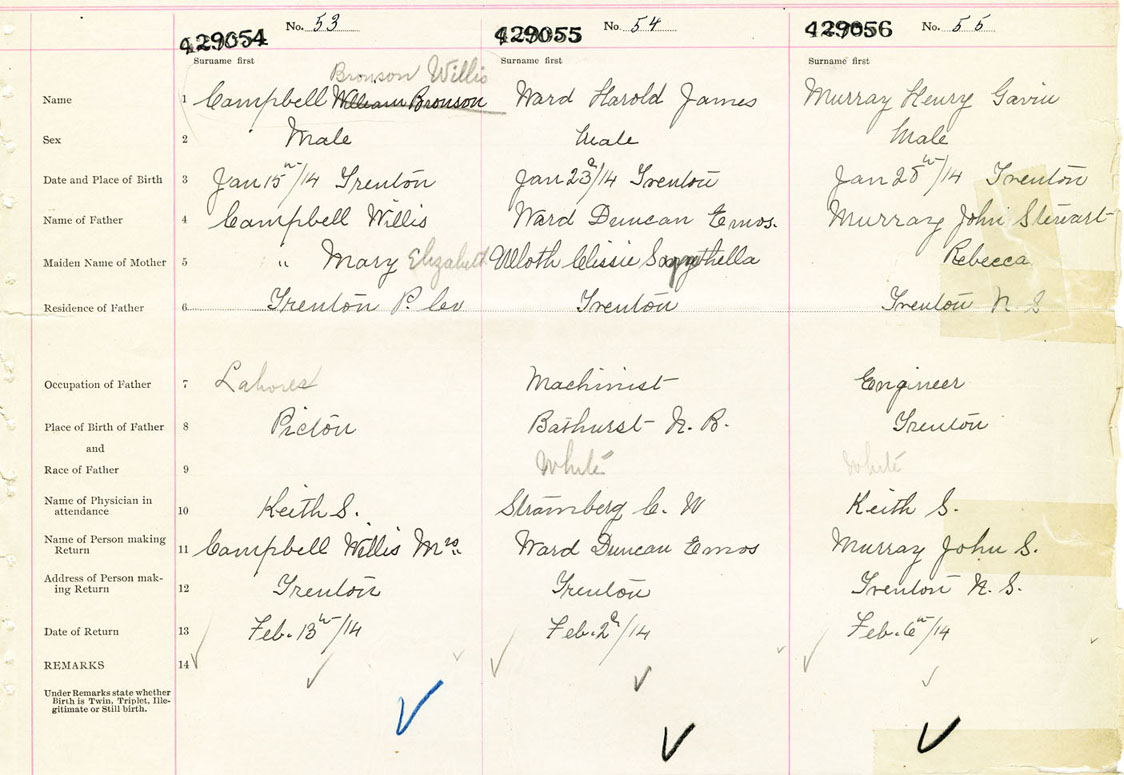 No. 53 No. 54 No. 55
429054 429055 429056
Surname first Surname first Surname first
Bronson Willis
Name 1 Campbell William Bronson Ward Harold James Murray Henry Gavin
Sex 2 Male Male Male
Date and Place of Birth 3 Jan 15th/14 Trenton Jan 23d/14 Trenton Jan 28th/14 Trenton
Name of Father 4 Campbell Willis Ward Duncan Emos. Murray John Stewart
Maiden Name of Mother 5 " Mary Elizabeth Ulloth Clissie Rebecca
Residence of Father 6 Trenton P. Co Trenton Trenton N S
Occupation of Father 7 Laborer Machinist Engineer
Place of Birth of Father 8 Pictou Bathurst N. B. Trenton
and
Race of Father 9 White White
Name of Physician in
attendance 10 Keith S. Stramberg C. W Keith S.
Name of Person making
Return 11 Campbell Willis Mrs. Ward Duncan Emos Murray John S.
Address of Person mak-
ing Return 12 Trenton Trenton Trenton N. S.
Date of Return 13 Feb. 13th/14 Feb. 2d/14 Feb. 6th/14
REMARKS 14
Under Remarks state whether
Birth is Twin, Triplet, Ille-
gitimate or Still birth.